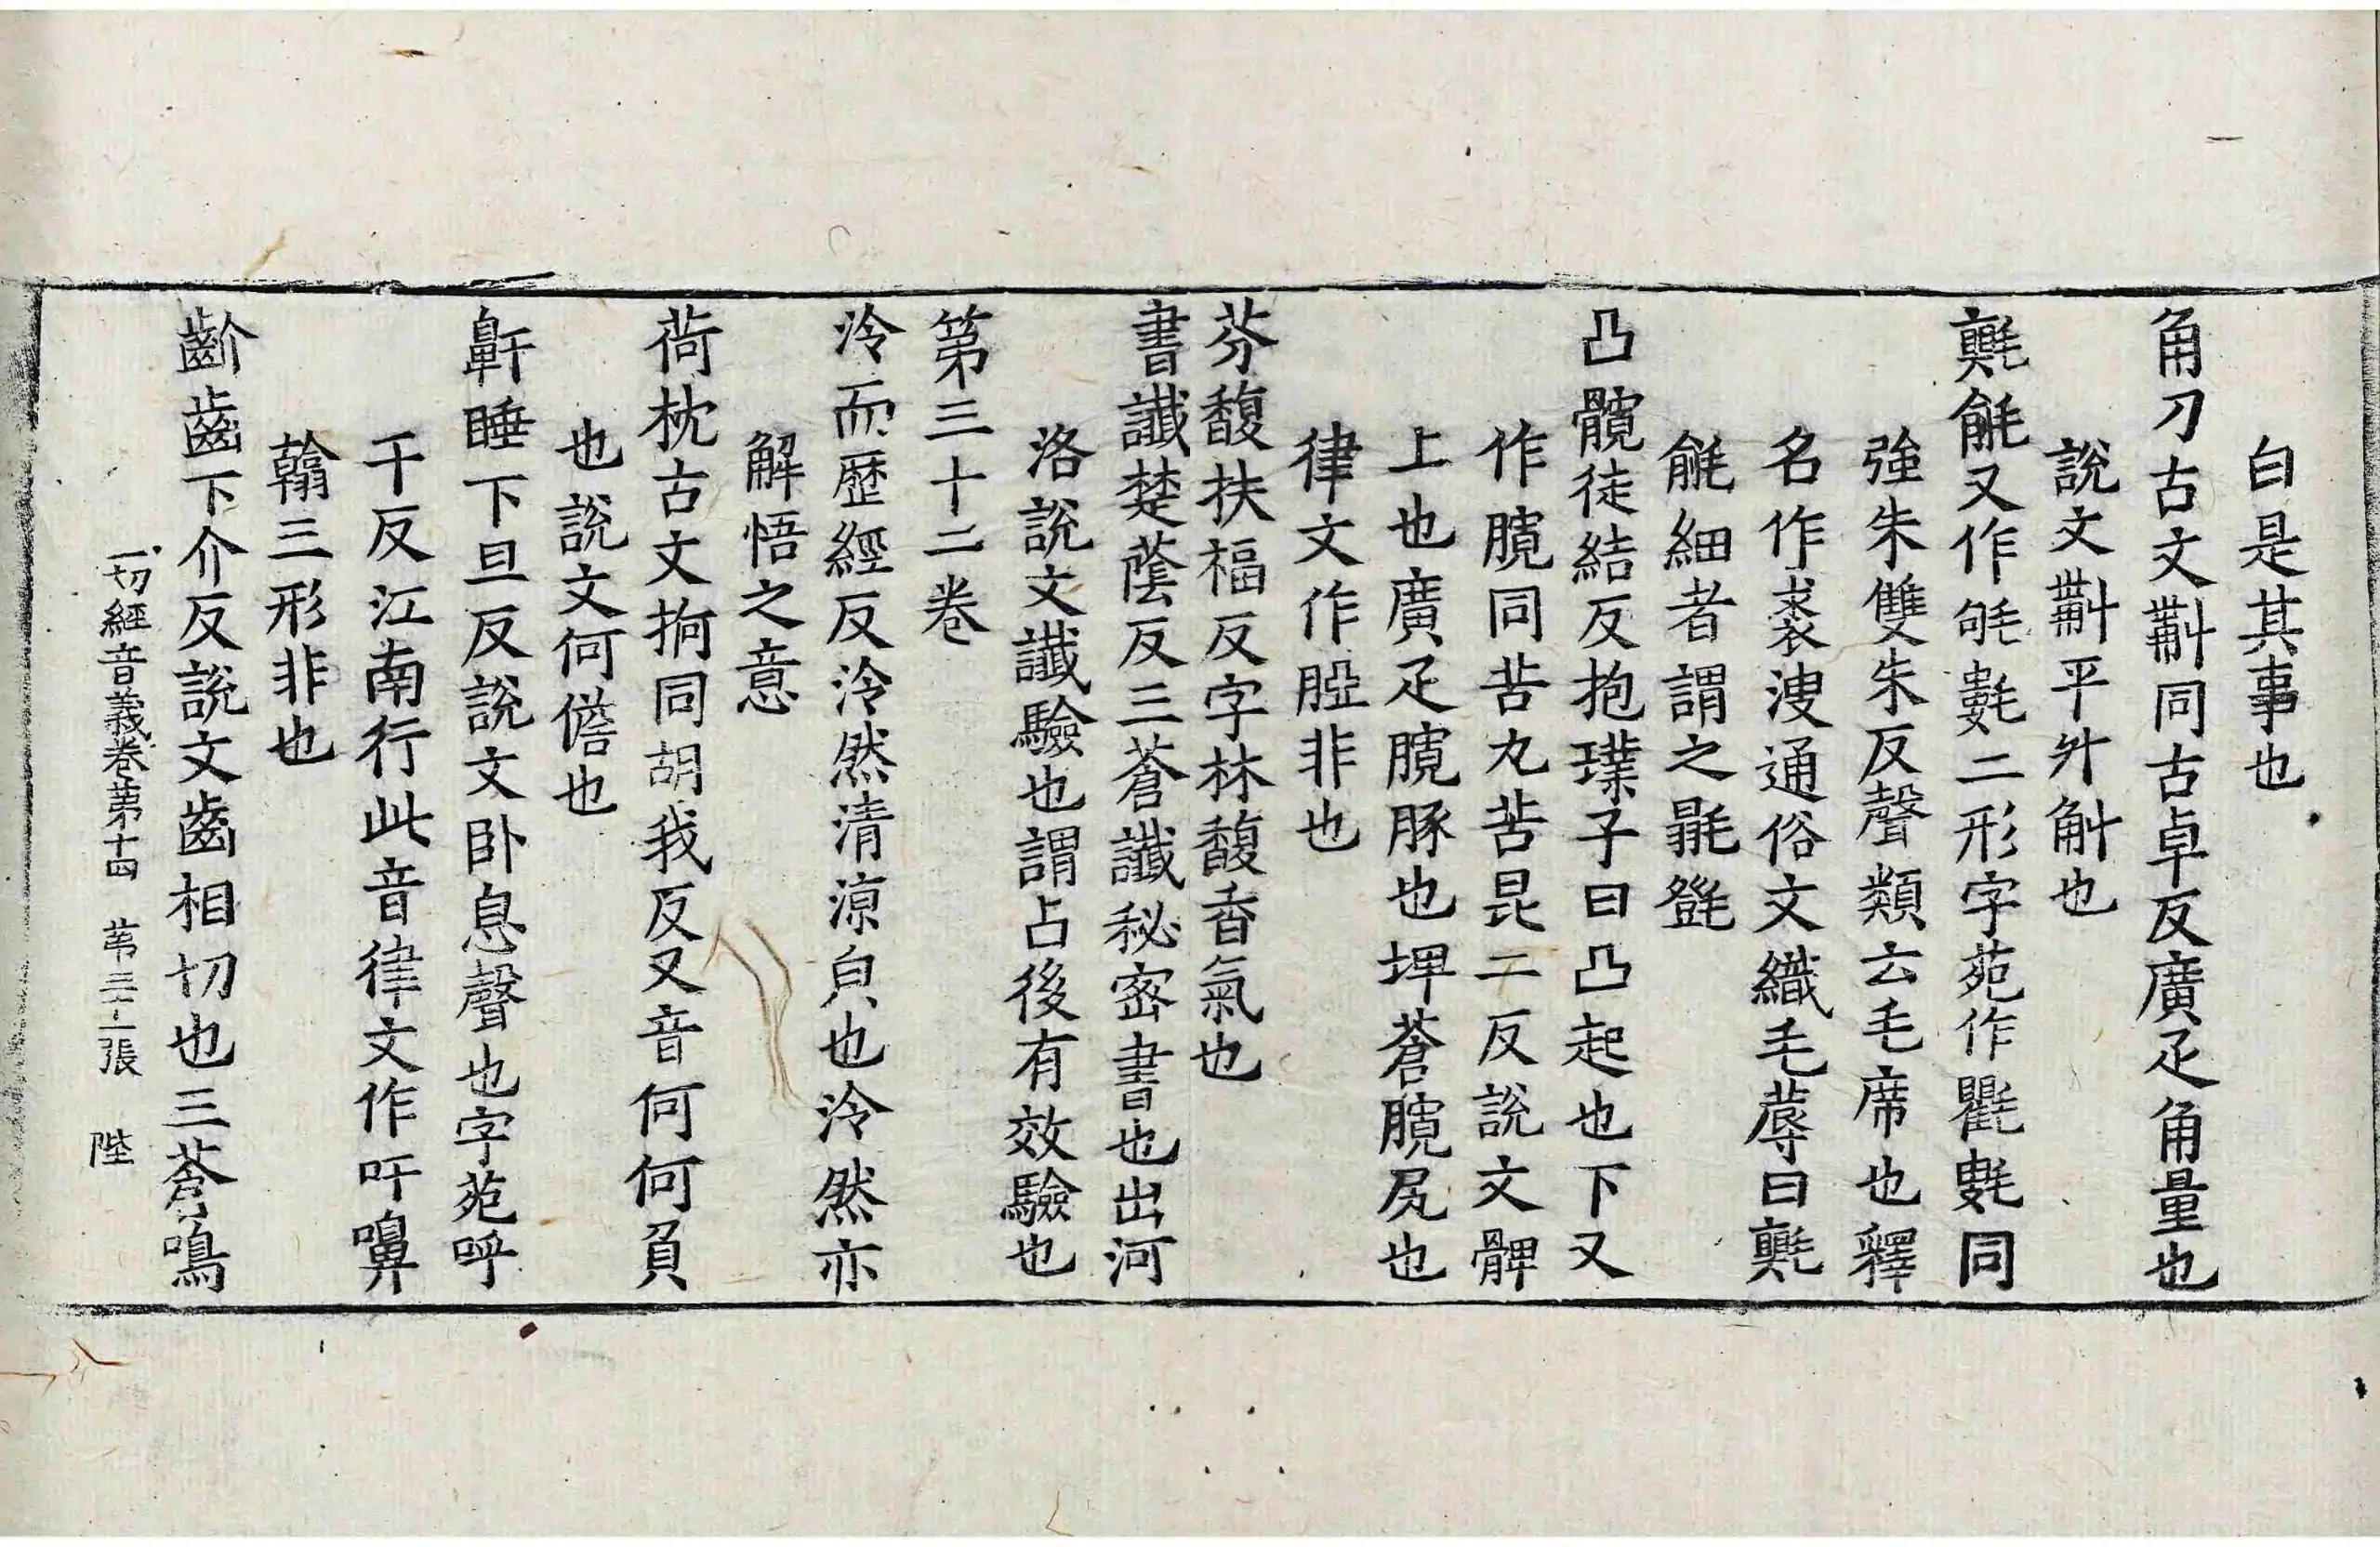 白是其事也
角刀古文𣂪同古卓反廣疋角量也
說文𣂪平斗斛也
氍㲣又作𣭲氀二形字苑作氍氀同
強朱雙朱反聲類云毛席也釋
名作裘溲通俗文織毛蓐曰氍
㲣細者謂之㲪㲪
凸髖徒結反抱璞子曰凸起也下又
作臗同苦丸苦昆二反說文髀
上也廣疋臗豚也埤蒼臗尻也
律文作䏰非也
芬馥扶福反字林馥香氣也
書讖楚蔭反三蒼讖秘密書也出河
洛說文讖驗也謂占後有效驗也
第三十二卷
泠而歷經反泠然清涼皃也泠然亦
解悟之意
荷枕古文抲同胡我反又音何何負
也說文何儋也
鼾睡下旦反說文臥息聲也字苑呼
干反江南行此音律文作吁嚊
翰三形非也
齘齒下介反說文齒相切也三蒼鳴
一切經音義卷第十四 第三十二張 陛